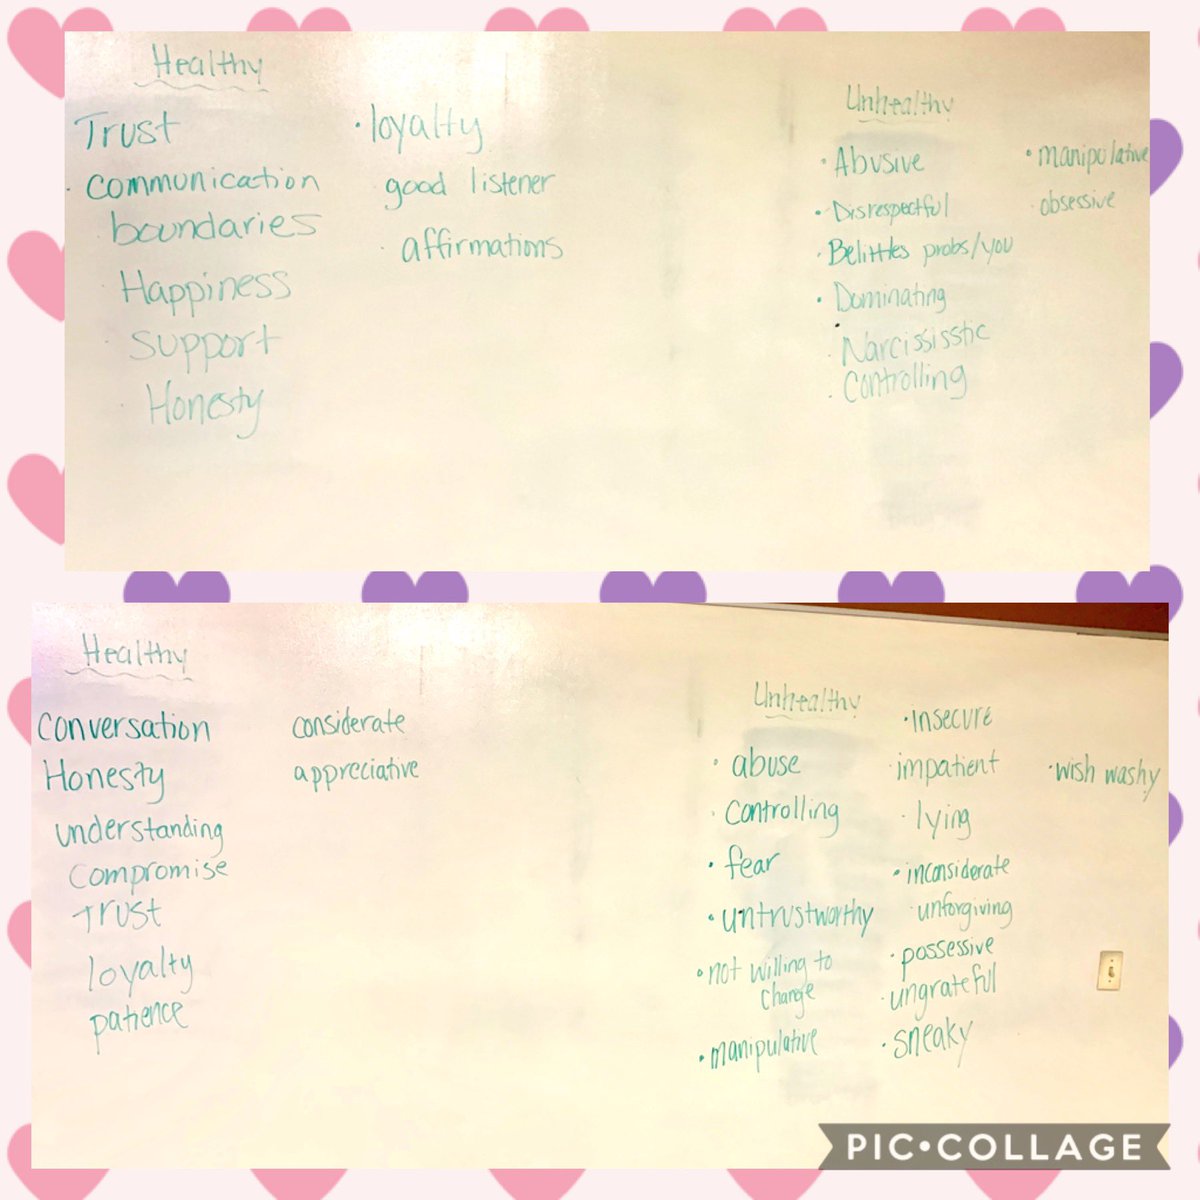 Healthy
Trust
· communication
· boundaries
· Happiness
support
· Honesty
· loyalty
good listener
· affirmations
Unhealthy
· Abusive
· Disrespectful
· Belittles probs/you
· Dominating
· Narcississtic
· Controlling
· manipulative
· obsessive
Healthy
Conversation
Honesty
understanding
Compromise
Trust
loyalty
patience
considerate
appreciative
Unhealthy
· abuse
· Controlling
· fear
· untrustworthy
· not willing to
change
· manipulative
· insecure
· impatient
· lying
· inconsiderate
· unforgiving
· possessive
· ungrateful
· sneaky
· wish washy
PIC•COLLAGE